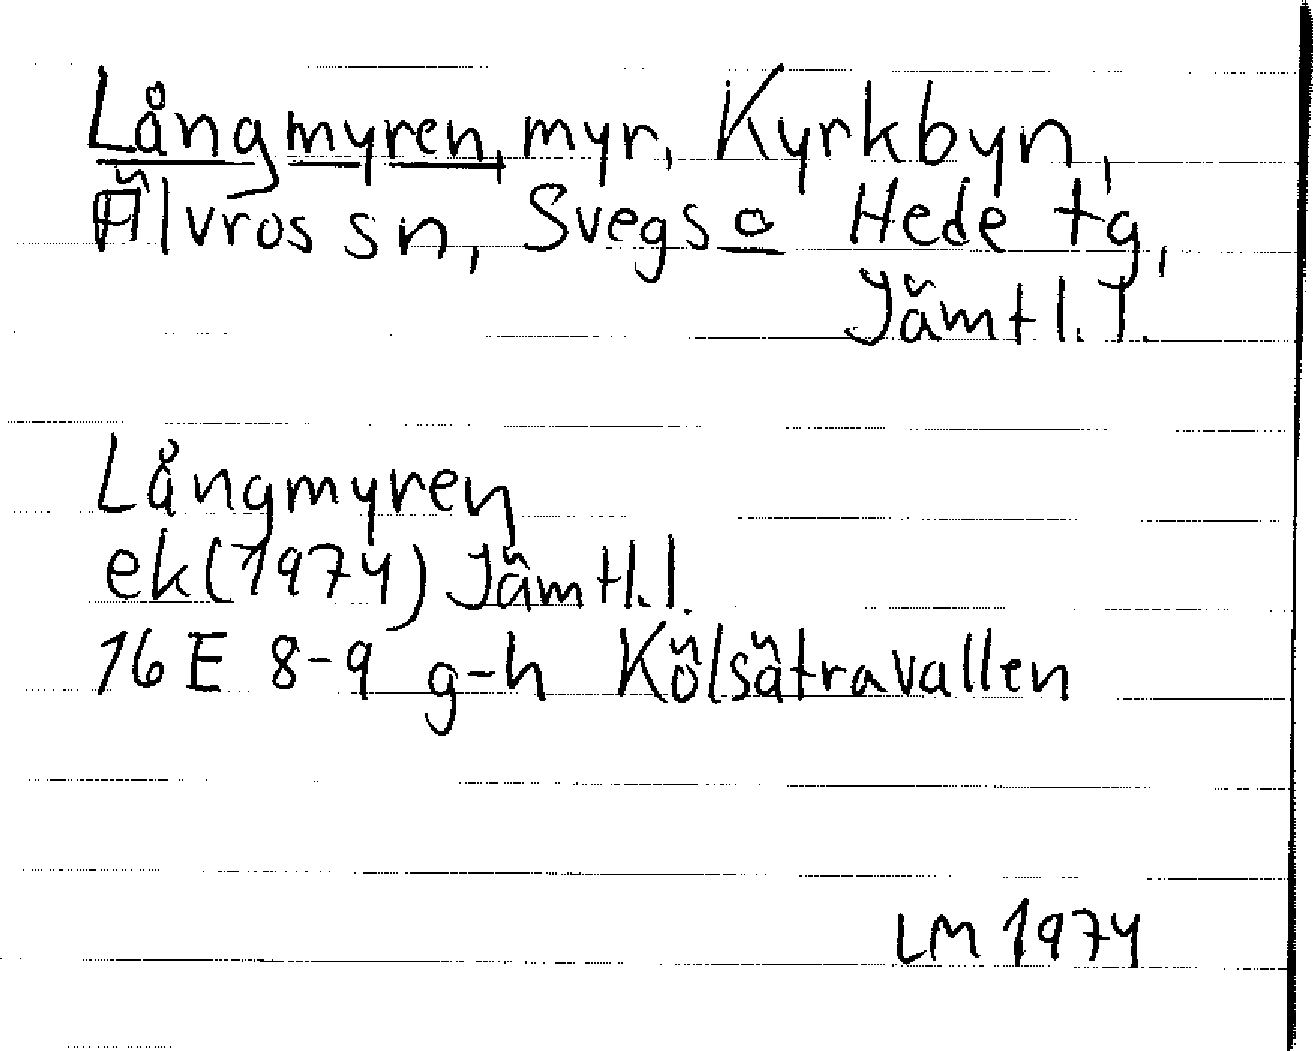 Långmyren, myr, Kyrkbyn,
Älvros sn, Svegs o Hede tg,
Jämtl. l.
Långmyren
ek (1974) Jämtl. l.
16 E 8-9 g-h Kölsätravallen
LM 1974